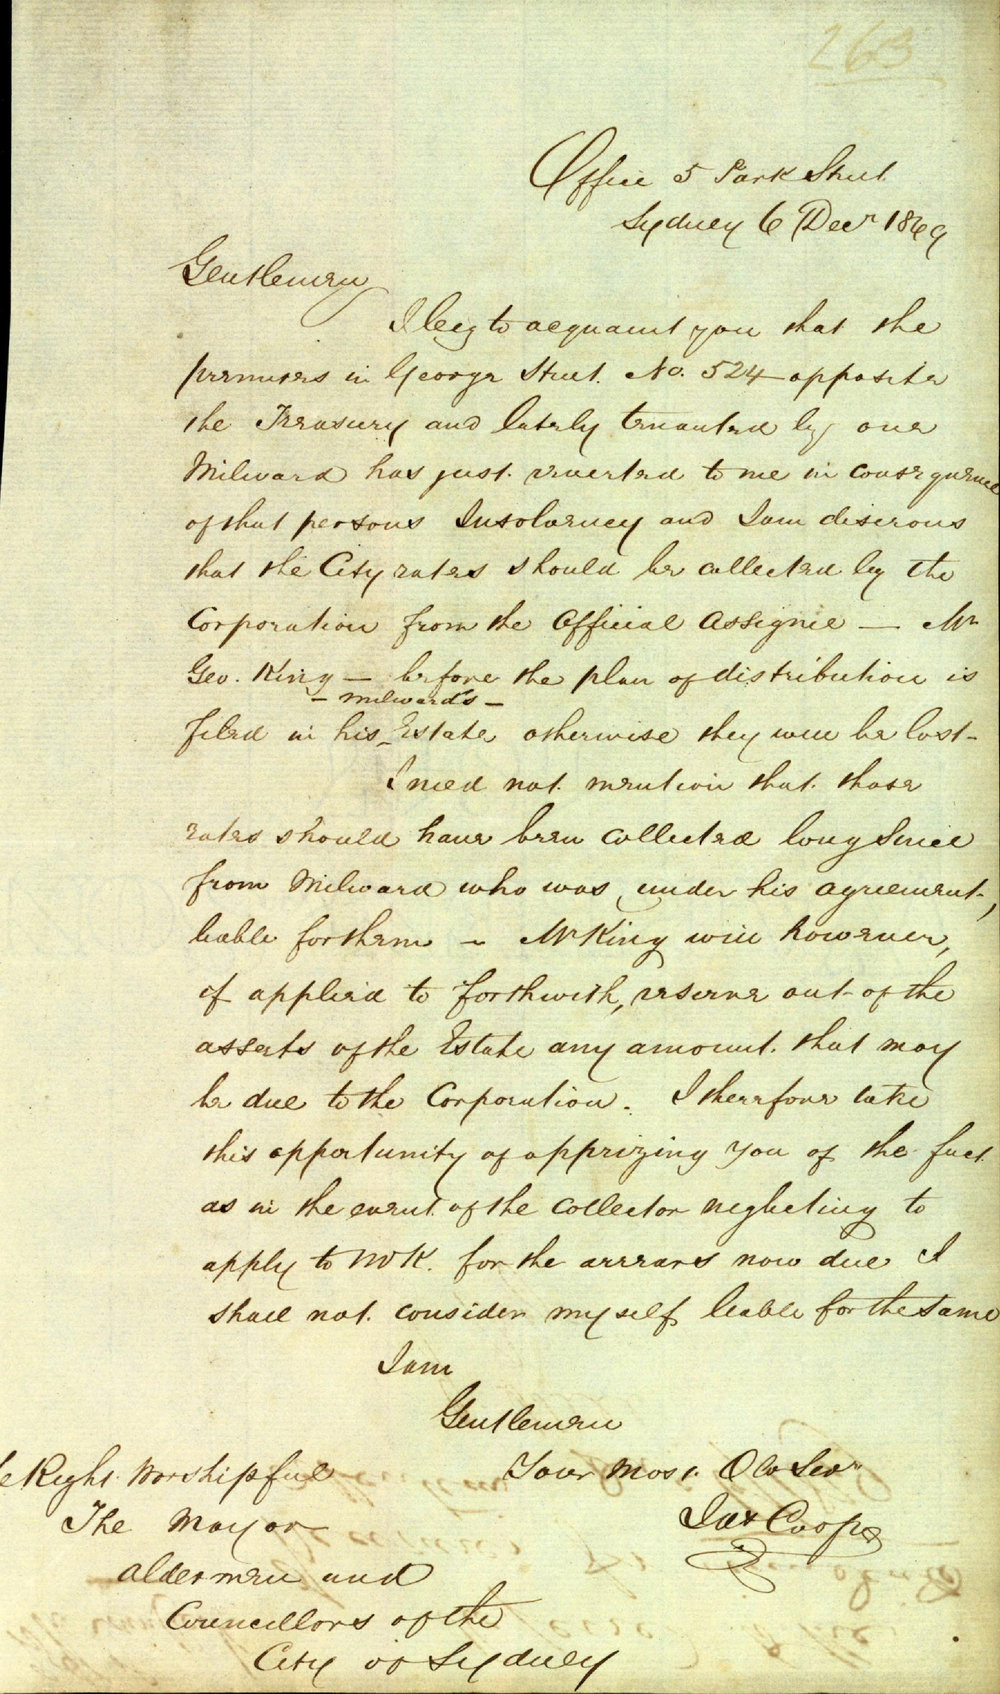 263
Office 5 Park Street
Sydney 6 Decr 1869
Gentlemen
I beg to acquaint you that the
premises in George Street. No. 524 opposite
the Treasury and lately tenanted by one
Milward has just reverted to me in consequence
of that persons Insolvency and I am desirous
that the City rates should be collected by the
Corporation from the Official Assignee — Mr
Geo. King — before the plan of distribution is
— Milward's —
filed in his Estate otherwise they will be lost —
I need not mention that those
rates should have been collected long since
from Milward who was, under his agreement,
liable for them — Mr King will however,
if applied to forthwith, reserve out of the
assets of the Estate any amount that may
be due to the Corporation. I therefore take
this opportunity of apprizing you of the fact
as in the event of the collector neglecting to
apply to Mr K. for the arrears now due I
shall not consider myself liable for the same
I am
Gentlemen
Your most Ob Servt
Jas Cooper
Right Worshipful
The Mayor
Aldermen and
Councillors of the
City of Sydney